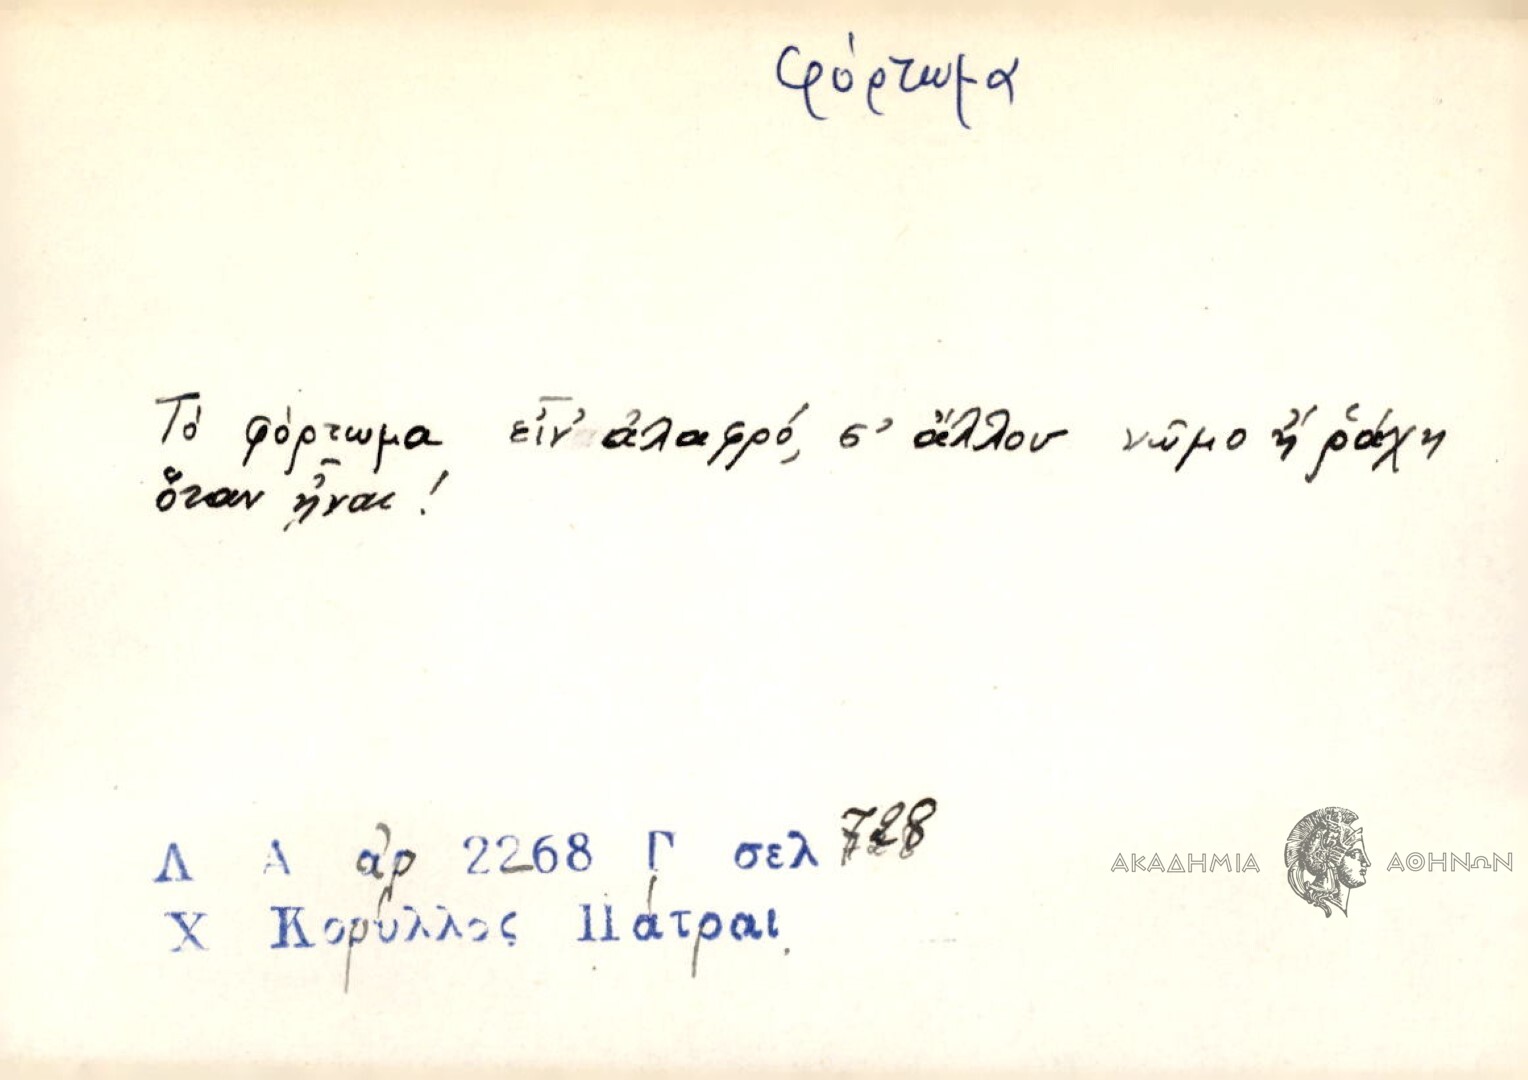 φόρτωμα
Τό φόρτωμα εἶν' ἀλαφρό, σ' ἄλλου νῶμο ἤ ῥάχη
ὅταν ἦναι!
Λ Α ἀρ 2268 Γ σελ 728
Χ Κορύλλος Πάτραι.
ΑΚΑΔΗΜΙΑ ΑΘΗΝΩΝ